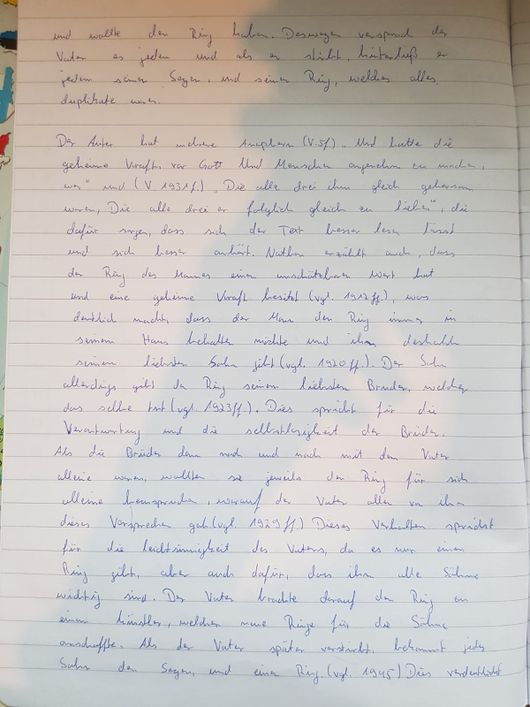 und wollte den Ring haben. Deswegen versprach der
Vater es jedem und als er stirbt, hinterließ er
jedem seinen Segen, und seinen Ring, welches alles
duplikate waren.
Der Autor hat mehrere Anaphern (V.5f) „Und hatte die
geheime Kraft, vor Gott Und Menschen angenehm zu machen,
wer" und (V. 1931f.) „Die alle drei ihm gleich gehorsam
waren, Die alle drei er folglich gleich zu lieben", die
dafür sorgen, dass sich der Text besser lesen lässt
und sich besser anhört. Nathan erzählt auch, dass
der Ring des Mannes einen unschätzbaren Wert hat
und eine geheime Kraft besitzt (vgl. 1912ff), was
deutlich macht, dass der Mann den Ring immer in
seinem Haus behalten möchte und ihn deshalb
seinem liebsten Sohn gibt (vgl. 1920ff.). Der Sohn
allerdings gibt den Ring seinem liebsten Bruder, welcher
das selbe tut (vgl. 1923ff.). Dies spricht für die
Verantwortung und die selbstlosigkeit der Brüder.
Als die Brüder dann nach und nach mit dem Vater
alleine waren, wollten sie jeweils den Ring für sich
alleine beanspruchen, worauf der Vater allen von ihn
dieses Versprechen gab (vgl. 1929ff) Dieses Verhalten spricht
für die leichtsinnigkeit des Vaters, da es nur einen
Ring gibt, aber auch dafür, dass ihm alle Söhne
wichtig sind. Der Vater brachte darauf den Ring an
einen künstler, welcher neue Ringe für die Söhne
anschaffte. Als der Vater später verstirbt, bekommt jeder
Sohn den Segen, und einen Ring. (vgl. 1945) Dies verdeutlicht